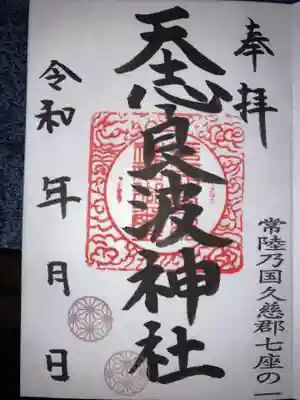 奉拝
常陸乃国久慈郡七座の一
天志良波神社
令和 年 月 日